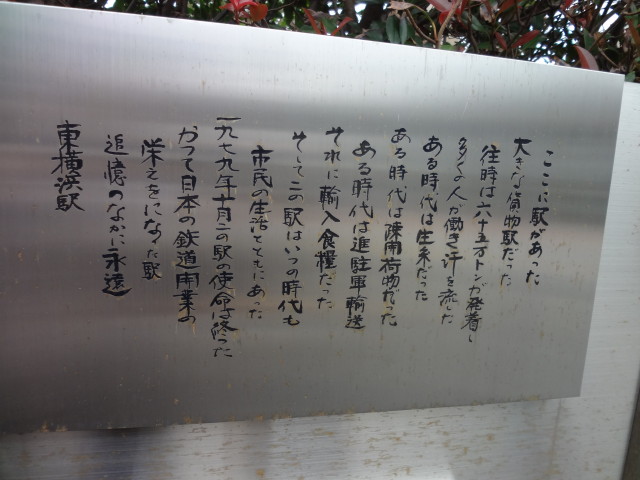 ここに駅があった
大きな貨物駅だった
往時は六十五万トンが発着し
多くの人が働き汗を流した
ある時代は生糸だった
ある時代は疎開荷物だった
ある時代は進駐軍輸送
それに輸入食糧だった
そしてこの駅はいつの時代も
市民の生活とともにあった
一九七九年十月この駅の使命は終った
かつて日本の鉄道開業の
栄えをになった駅
追憶のなかに永遠
東横浜駅